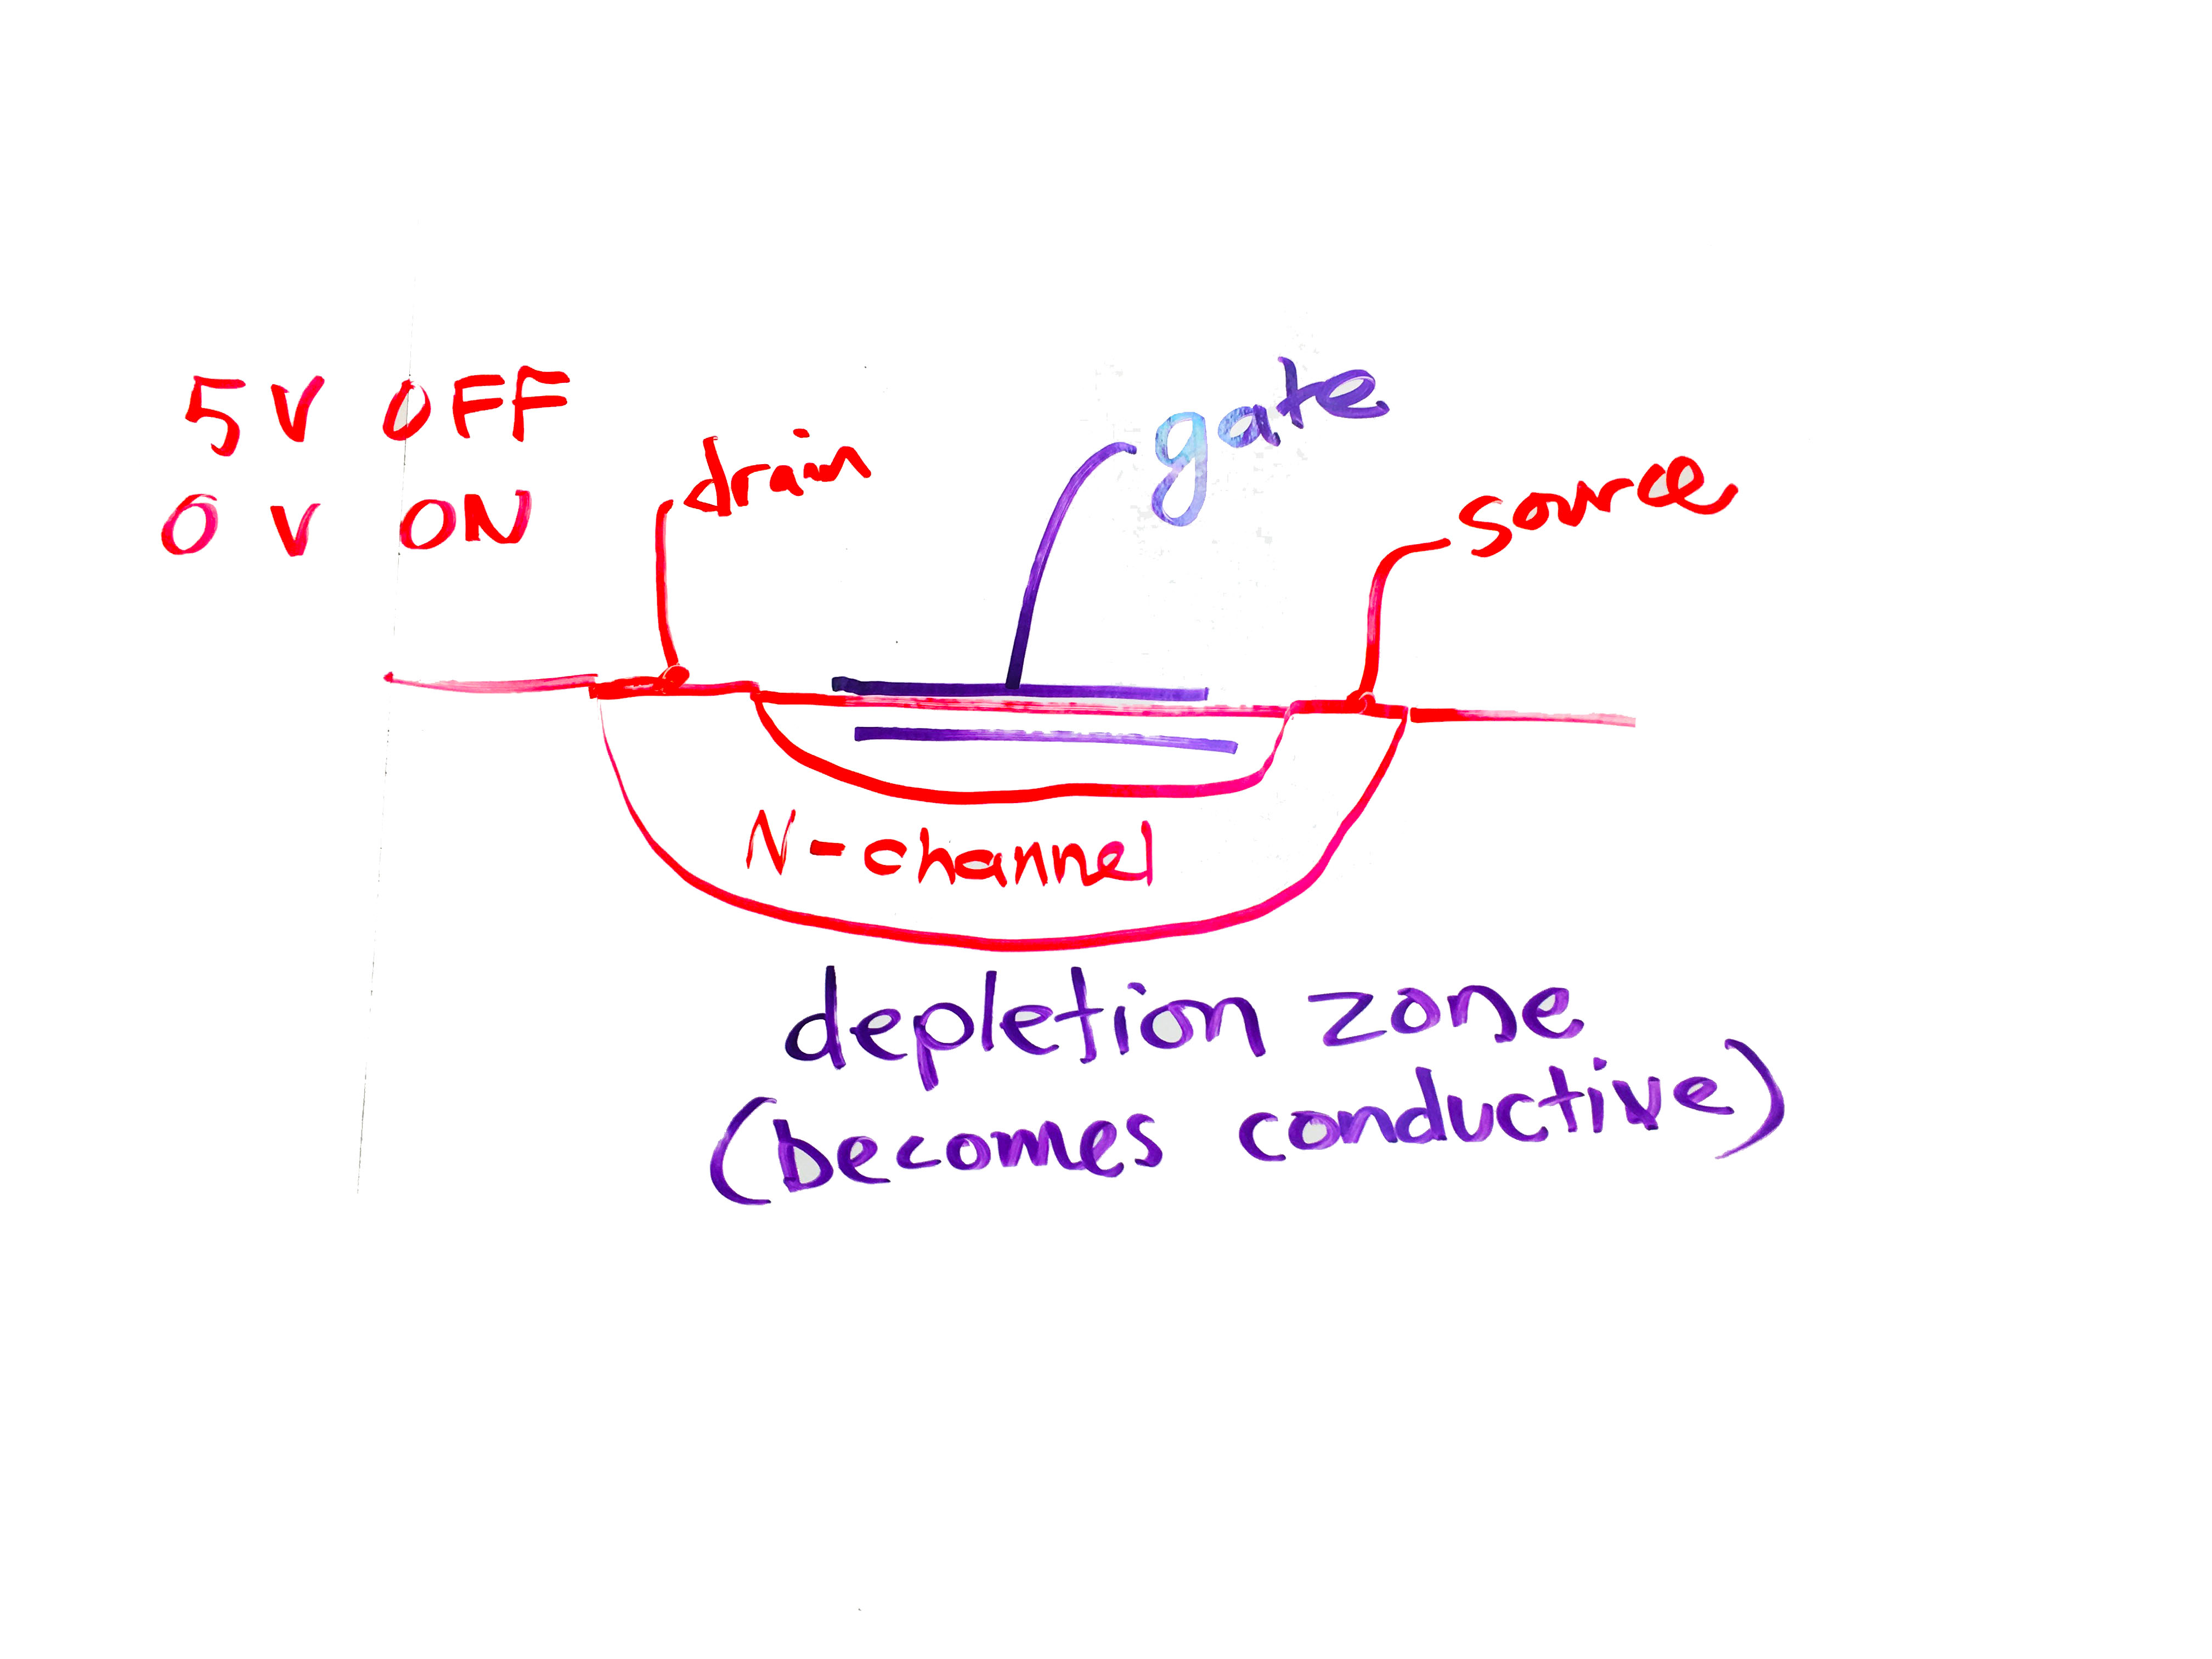 5V OFF
0V ON
drain
gate
source
N-channel
depletion zone
(becomes conductive)